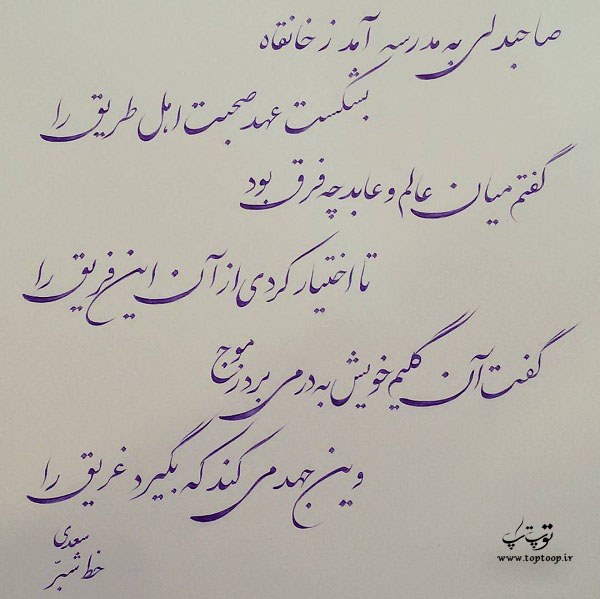 صاحبدلی به مدرسه آمد ز خانقاه
بشکست عهد صحبت اهل طریق را
گفتم میان عالم و عابد چه فرق بود
تا اختیار کردی از آن این فریق را
گفت آن گلیم خویش به در می برد ز موج
وین جهد می کند که بگیرد غریق را
سعدی
خط شبّر
توپ تاپ
www.toptoop.ir